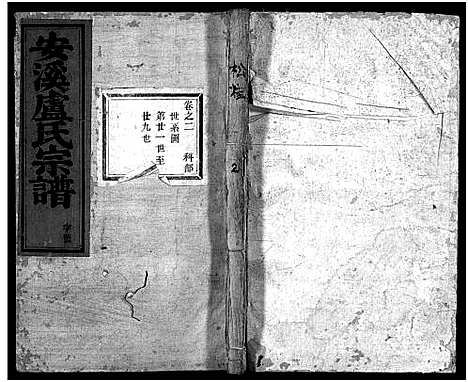 安溪盧氏宗譜
卷之二 科部
世系圖
第廿一世至
廿九世
2